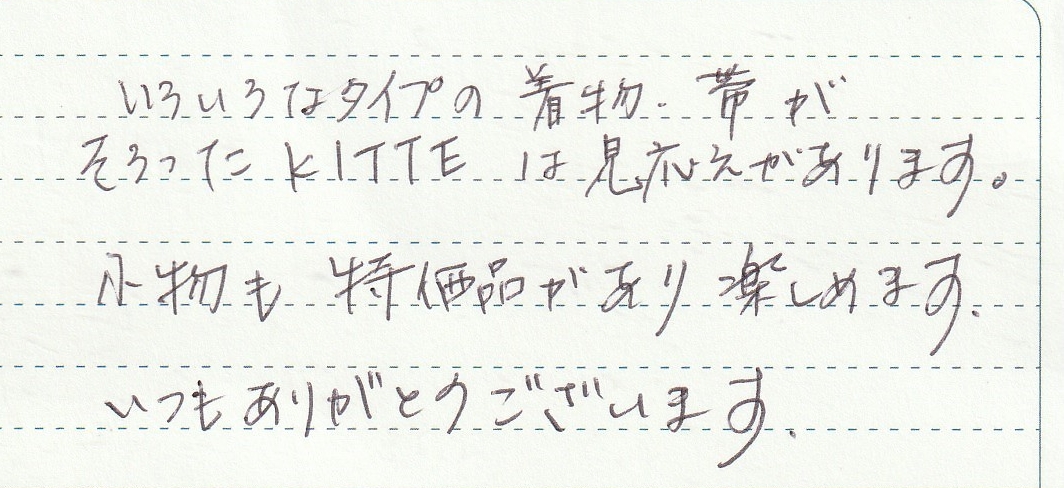 いろいろなタイプの着物.帯が
そろったKITTEは見応えがあります。
小物も特価品があり楽しめます.
いつもありがとうございます.